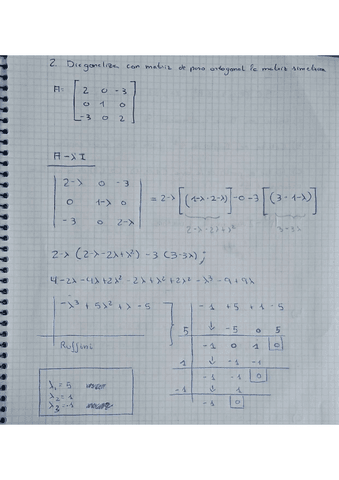 2. Diagonaliza con matriz de paso ortogonal la matriz simétrica
A = [ 2 0 -3
0 1 0
-3 0 2 ]
A - λI
| 2-λ 0 -3 |
| 0 1-λ 0 | = 2-λ [(1-λ · 2-λ)] - 0 - 3 [(3 · 1-λ)]
| -3 0 2-λ |
2-λ-2λ+λ² 3-3λ
2-λ (2-λ-2λ+λ²) - 3 (3-3λ);
4-2λ-4λ+2λ²-2λ+λ²+2λ²-λ³-9+9λ
-λ³ + 5λ² + λ - 5
Ruffini
-1 +5 +1 -5
5 ↓ -5 0 5
-1 0 1 0
1 ↓ -1 -1
-1 -1 0
-1 ↓ 1
-1 0
λ₁ = 5
λ₂ = 1
λ₃ = -1